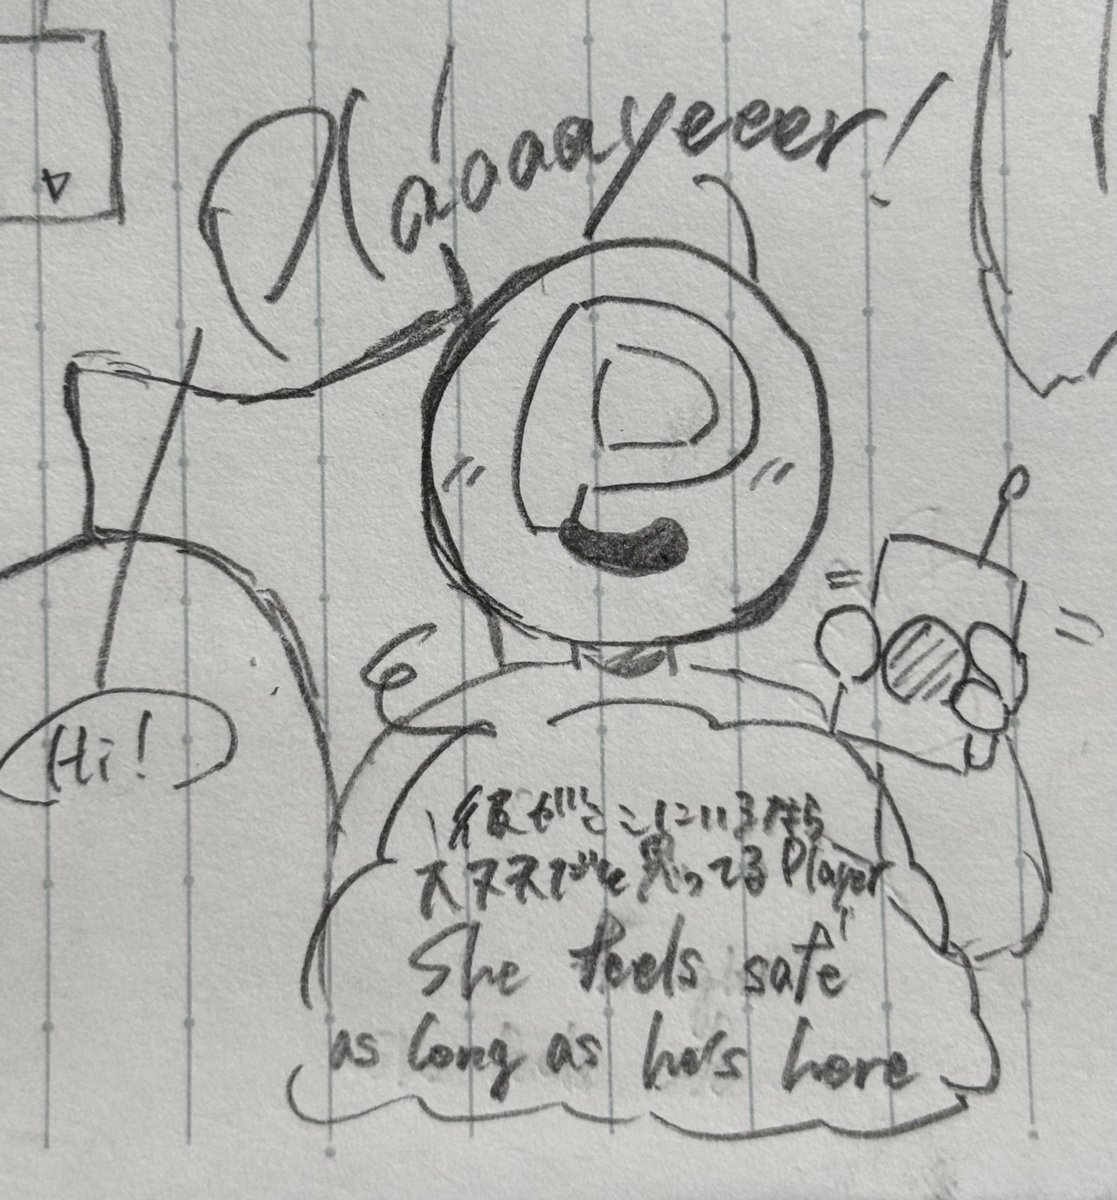 Plaaaayeeer!
P
Hi!
彼がここにいるから
大丈夫だと思ってるPlayer
She feels safe
as long as he's here